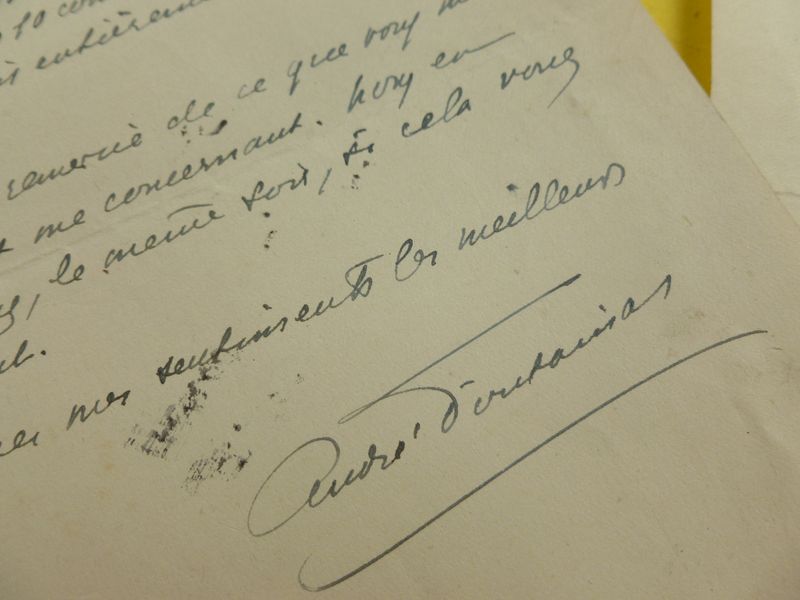 entièrement
remercie de ce que vous
me concernant. nous en
, le même soir, si cela vous
mes sentiments les meilleurs
André Fontainas